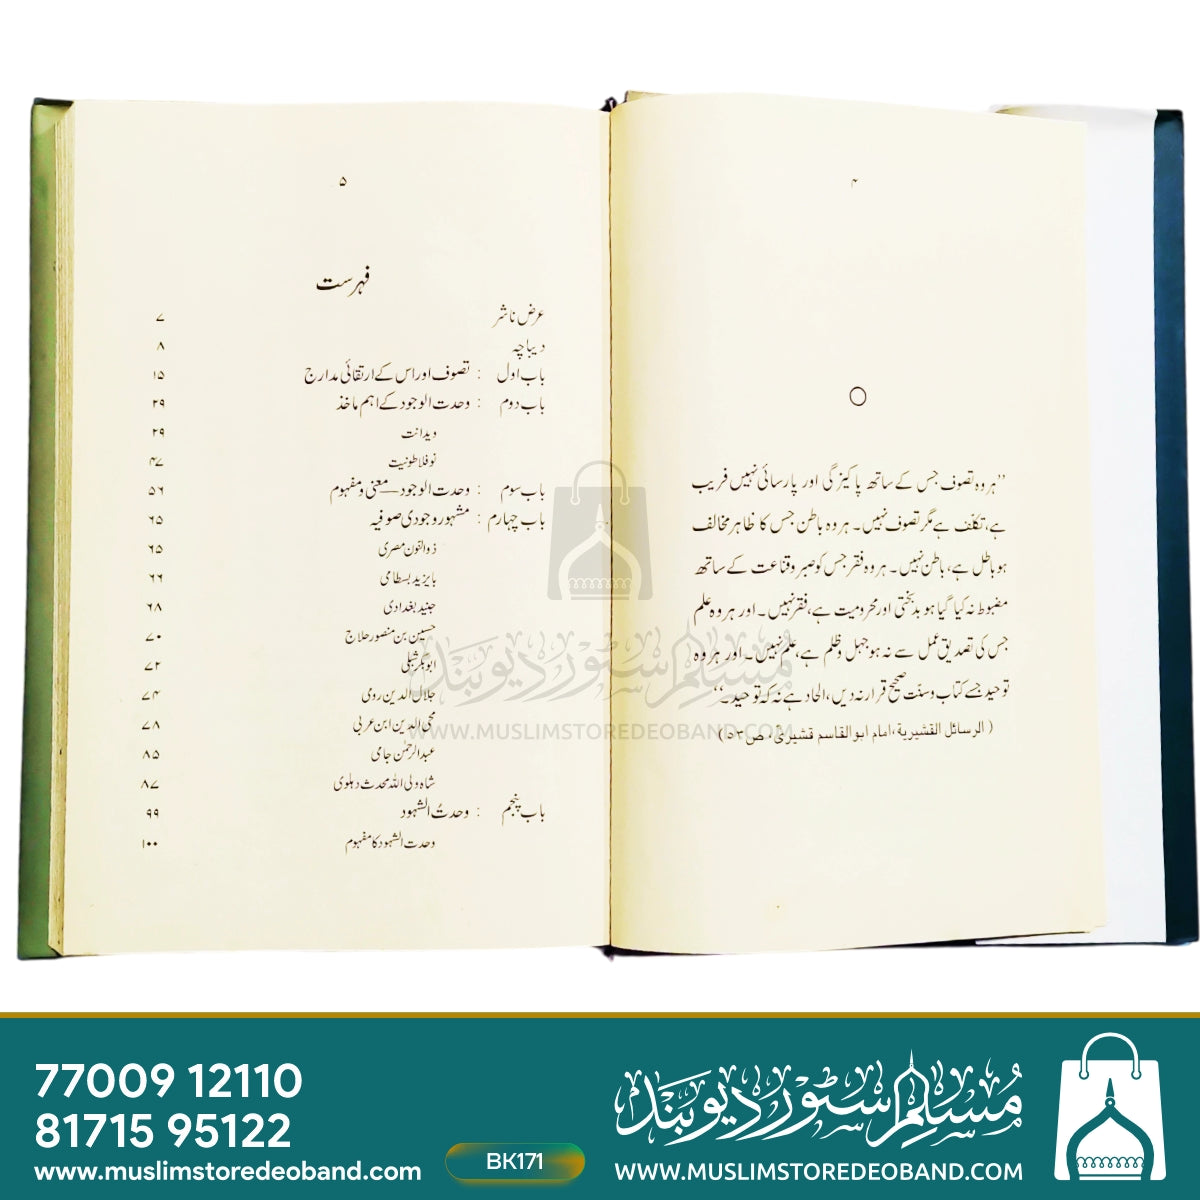 ۴
”ہر وہ تصوف جس کے ساتھ پاکیزگی اور پارسائی نہیں فریب
ہے، تکلّف ہے مگر تصوف نہیں۔ ہر وہ باطن جس کا ظاہر مخالف
ہو باطل ہے، باطن نہیں۔ ہر وہ فقر جس کو صبر و قناعت کے ساتھ
مضبوط نہ کیا گیا ہو بدبختی اور محرومیت ہے، فقر نہیں۔ اور ہر وہ علم
جس کی تصدیق عمل سے نہ ہو جہل و ظلم ہے، علم نہیں۔ اور ہر وہ
توحید جسے کتاب و سنّت صحیح قرار نہ دیں، الحاد ہے نہ کہ توحید۔“
(الرسائل القشیریة، امام ابوالقاسم قشیریؒ، ص ۵۳)
۵
فہرست
عرض ناشر ۷
دیباچہ ۸
باب اول : تصوف اور اس کے ارتقائی مدارج ۱۵
باب دوم : وحدت الوجود کے اہم ماخذ ۲۹
ویدانت ۲۹
نوفلاطونیت ۴۷
باب سوم : وحدت الوجود—معنی و مفہوم ۵۶
باب چہارم : مشہور وجودی صوفیہ ۶۵
ذوالنون مصری ۶۵
بایزید بسطامی ۶۶
جنید بغدادی ۶۸
حسین بن منصور حلاج ۷۰
ابوبکر شبلی ۷۲
جلال الدین رومی ۷۴
محی الدین ابن عربی ۷۸
عبدالرحمٰن جامی ۸۵
شاہ ولی اللہ محدث دہلوی ۸۷
باب پنجم : وحدت الشہود ۹۹
وحدت الشہود کا مفہوم ۱۰۰
مسلم سٹور دیوبند
WWW.MUSLIMSTOREDEOBAND.COM
77009 12110
81715 95122
www.muslimstoredeoband.com
BK171
مسلم سٹور دیوبند
WWW.MUSLIMSTOREDEOBAND.COM